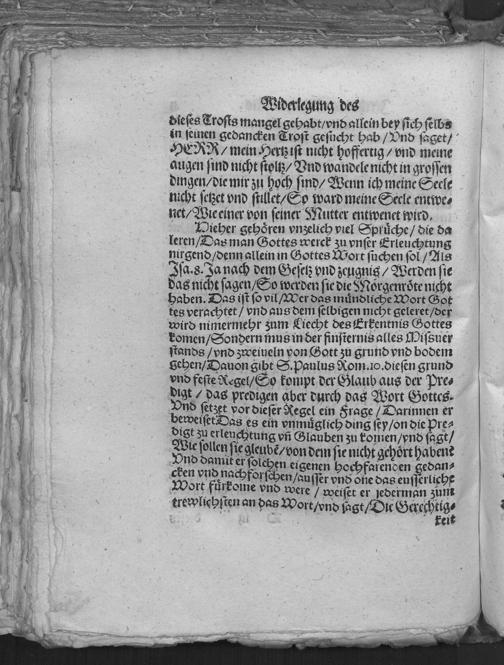 Widerlegung des
dieses Trosts mangel gehabt/vnd allein bey sich selbs
in seinen gedancken Trost gesucht hab/Vnd saget/
HERR/mein Hertz ist nicht hoffertig/vnd meine
augen sind nicht stoltz/Vnd wandele nicht in grossen
dingen/die mir zu hoch sind/Wenn ich meine Seele
nicht setzet vnd stillet/So ward meine Seele entwe-
net/Wie einer von seiner Mutter entwenet wird.
Hieher gehören vnzelich viel Sprüche/die da
leren/Das man Gottes werck zu vnser Erleuchtung
nirgend/denn allein in Gottes Wort suchen sol/Als
Jsa.8. Ja nach dem Gesetz vnd zeugnis/Werden sie
das nicht sagen/So werden sie die Morgenröte nicht
haben. Das ist so vil/Wer das mündliche Wort Got
tes verachtet/vnd aus dem selbigen nicht geleret/der
wird nimermehr zum Liecht des Erkentnis Gottes
komen/Sondern mus in der finsternis alles Misuer
stands/vnd zweiueln von Gott zu grund vnd bodem
gehen/Dauon gibt S. Paulus Rom.10. diesen grund
vnd feste Regel/So kompt der Glaub aus der Pre-
digt/das predigen aber durch das Wort Gottes.
Vnd setzet vor dieser Regel ein Frage/Darinnen er
beweiset Das es ein vnmüglich ding sey/on die Pre-
digt zu erleuchtung vñ Glauben zu komen/vnd sagt/
Wie sollen sie gleubē/von dem sie nicht gehört haben?
Vnd damit er solchen eigenen hochfarenden gedan-
cken vnd nachforschen/ausser vnd one das eusserliche
Wort fürkome vnd were/weiset er jederman zum
trewlichsten an das Wort/vnd sagt/Die Gerechtig-
keit